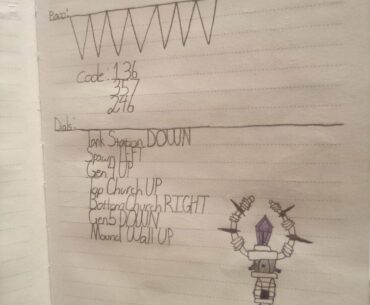 Code: 136
357
246
Dials:
Tank Station DOWN
Spawn LEFT
Gen 4 UP
Top Church UP
Bottom Church RIGHT
Gen 5 DOWN
Mound Wall UP